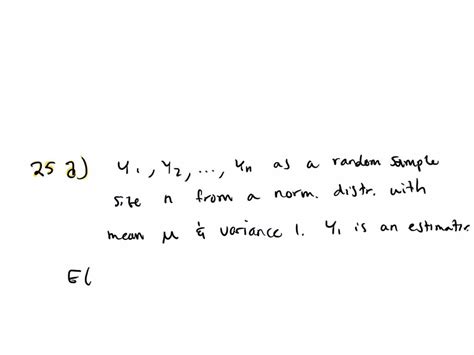 25 a) Y₁, Y₂, ..., Yₙ as a random sample
size n from a norm. distr. with
mean μ & variance 1. Y₁ is an estimator
E(